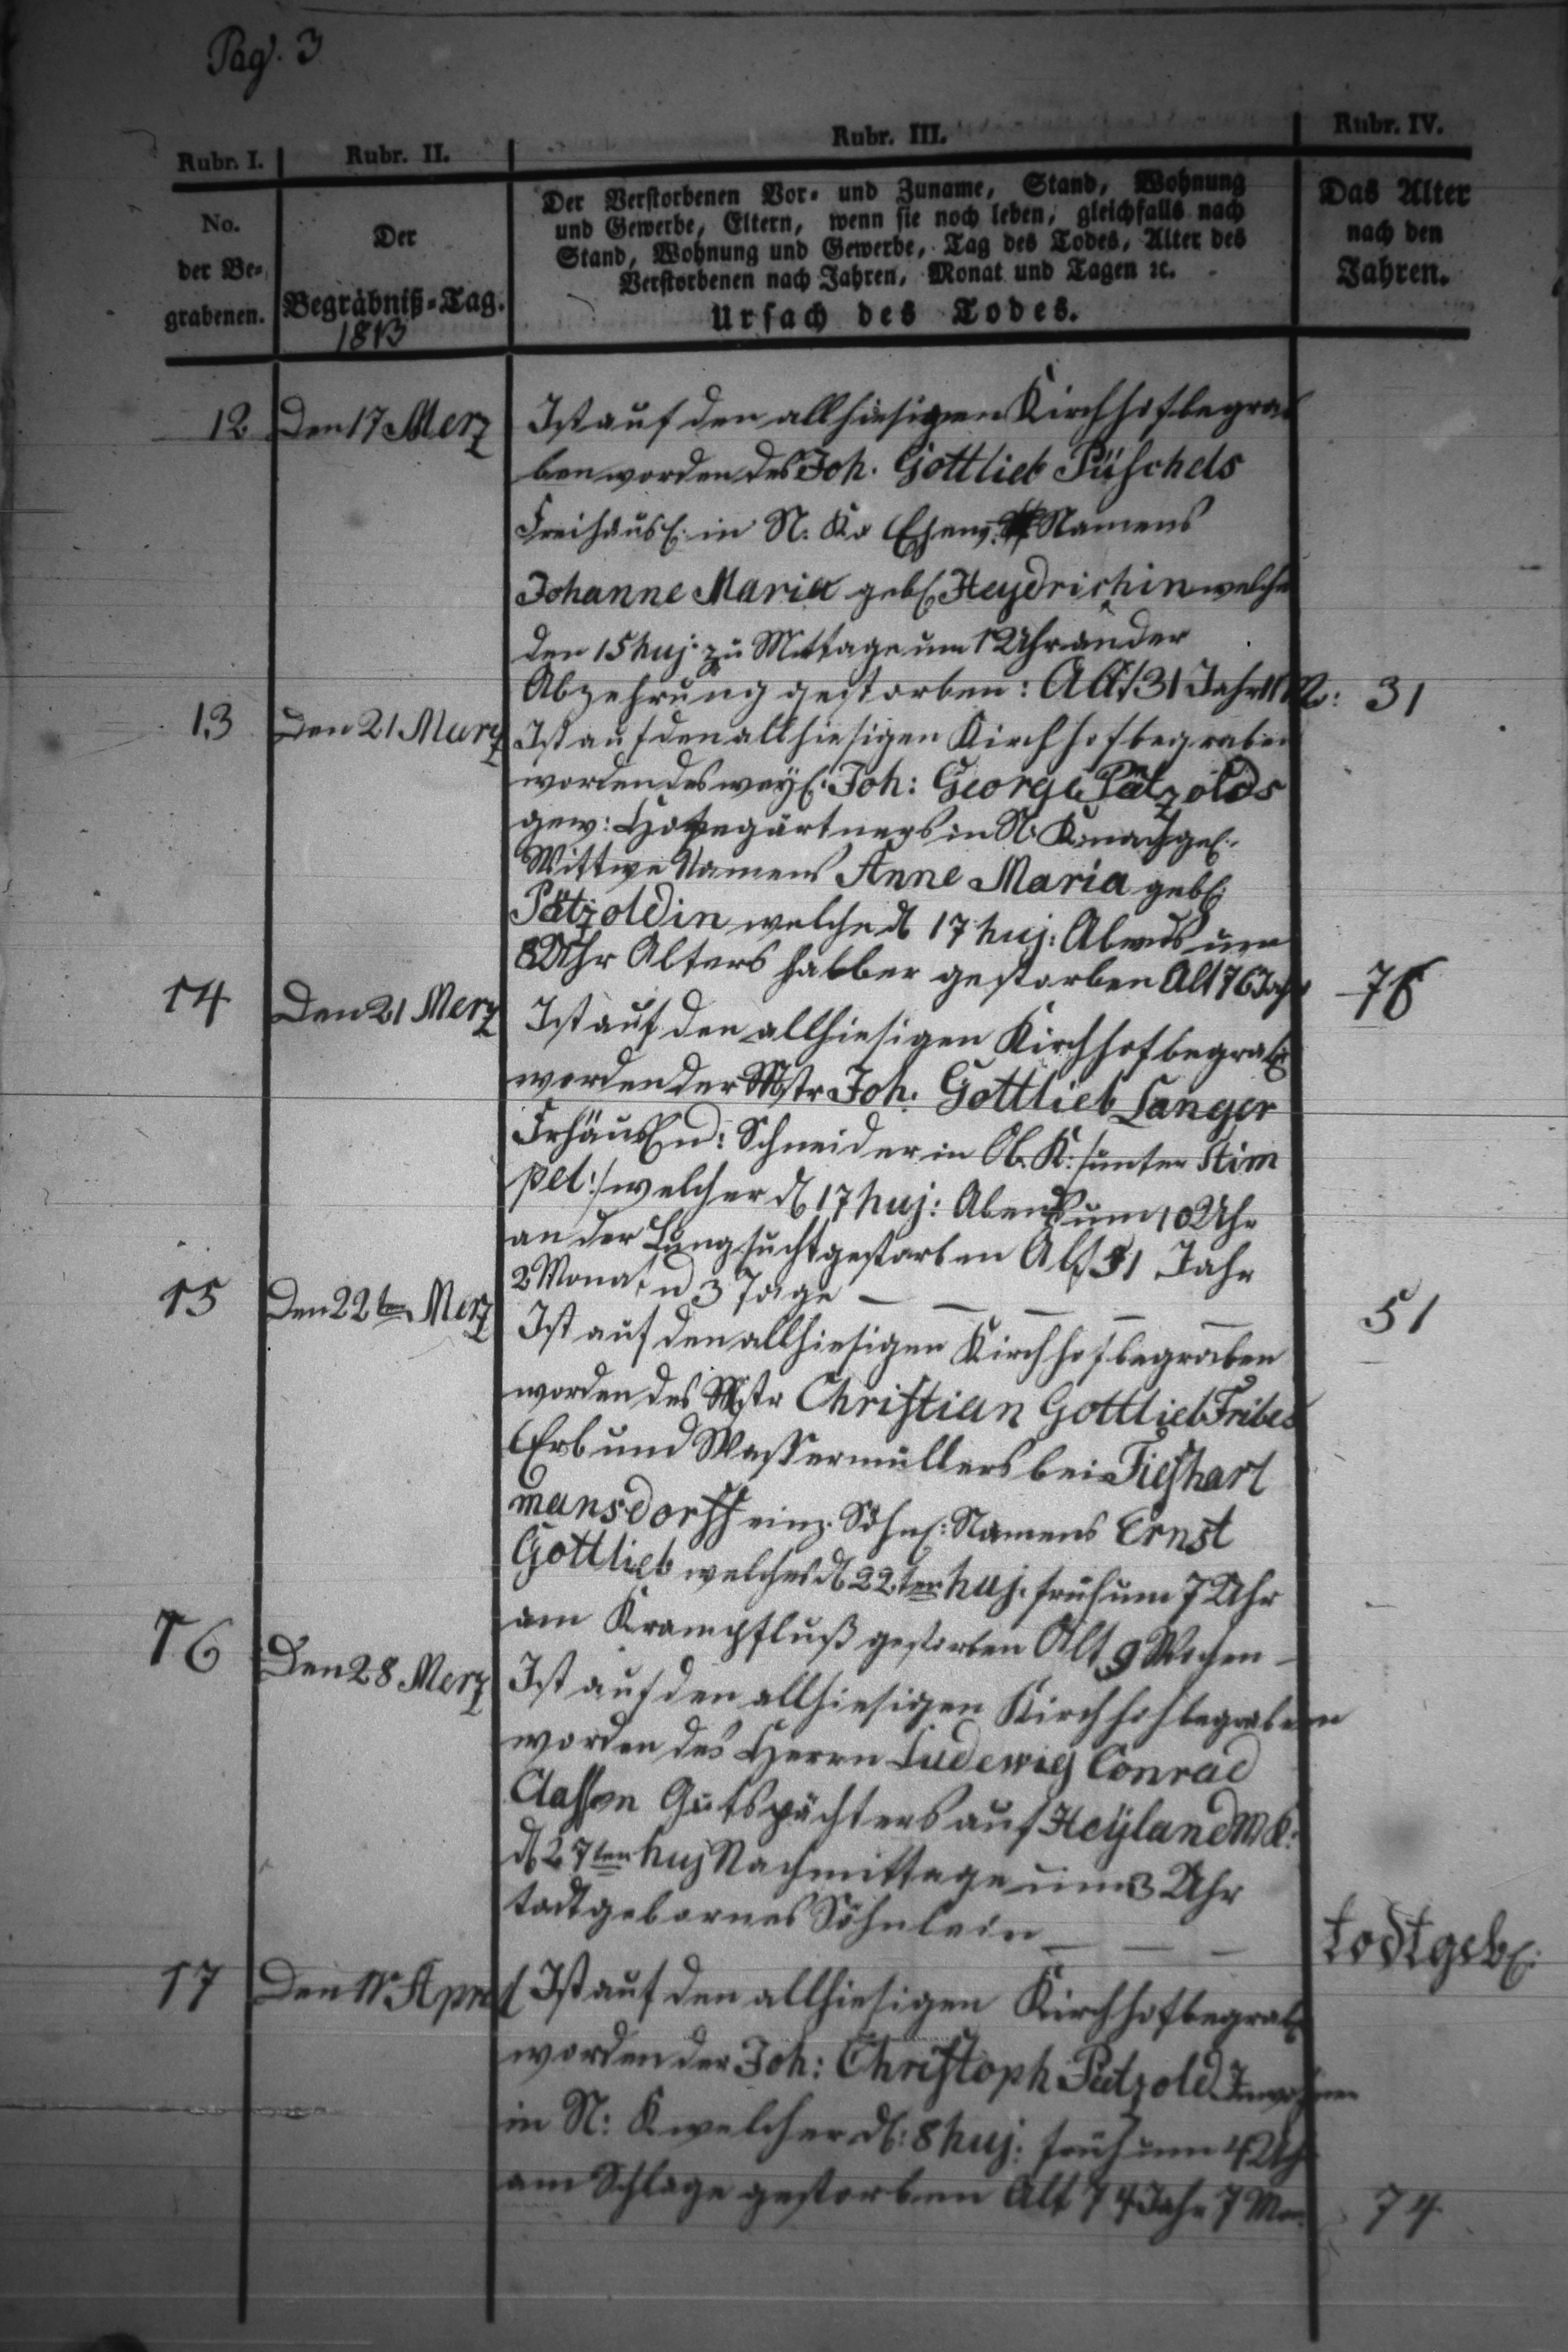 Pag. 3
Rubr. I.
Rubr. II.
Rubr. III.
Rubr. IV.
No.
der Be-
grabenen.
Der
Begräbniß-Tag.
1813
Der Verstorbenen Vor- und Zuname, Stand, Wohnung
und Gewerbe, Eltern, wenn sie noch leben, gleichfalls nach
Stand, Wohnung und Gewerbe, Tag des Todes, Alter des
Verstorbenen nach Jahren, Monat und Tagen ꝛc.
Ursach des Todes.
Das Alter
nach den
Jahren.
12 Den 17 Merz Ist auf den allhiesigen Kirchhof begra
ben worden des Joh. Gottlieb Püschels
Freihäusl. in N. K. Ehew. Namens
Johanne Maria geb. Heydrichin welche
den 15 huj. zu Mittage um 1 Uhr an der
Abzehrung gestorben: Alt 31 Jahr 11 M: 31
13 Den 21 Merz Ist auf den allhiesigen Kirchhof begraben
worden des weyl. Joh: George Pätzolds
gew: Hofegärtners in N: K. nachgel.
Wittwe Namens Anne Maria geb.
Pätzoldin welche d. 17 huj: Abends um
8 Uhr Alters halber gestorben Alt 76 Jahr 76
14 Den 21 Merz Ist auf den allhiesigen Kirchhof begrab.
worden der Mstr Joh. Gottlieb Langer
Frhäusl. u. Schneider in Ob. K: /unter Stim
pel:/ welcher d. 17 huj: Abends um 10 Uhr
an der Lungsucht gestorben Alt 51 Jahr
2 Monat u 3 Tage — — — — — 51
15 Den 22ten Merz Ist auf den allhiesigen Kirchhof begraben
worden des Mstr Christian Gottlieb Fribes
Erb und Wassermüllers bei Tiefhart
mansdorff einz. Söhnl: Namens Ernst
Gottlieb welches d. 22ten huj. früh um 7 Uhr
am Krampfluß gestorben Alt 9 Wochen –
16 Den 28 Merz Ist auf den allhiesigen Kirchhof begraben
worden des Herrn Ludewig Conrad
Classen Gutspächters auf Heyland
d. 27ten huj Nachmittage um 3 Uhr
todtgebornes Söhnlein — — — todtgeb.
17 Den 11 April Ist auf den allhiesigen Kirchhof begrab.
worden der Joh: Christoph Pätzold Inwohner
in N: K welcher d: 8 huj: früh um 4 Uhr
am Schlage gestorben Alt 74 Jahr 7 Mon. 74